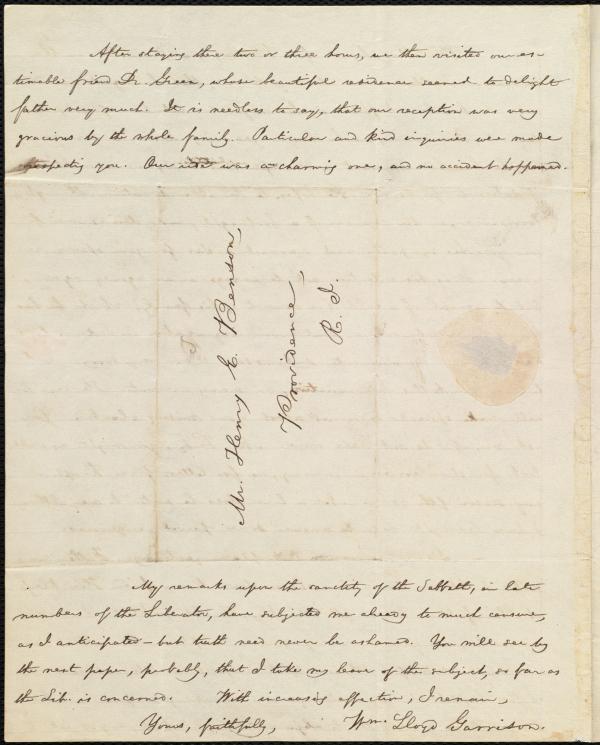 After staying there two or three hours, we then visited our es-
timable friend Dr. Green, whose beautiful residence seemed to delight
father very much. It is needless to say, that our reception was very
gracious by the whole family. Particular and kind inquiries were made
respecting you. Our ride was a charming one, and no accident happened.
Mr. Henry E. Benson,
Providence,
R. I.
My remarks upon the sanctity of the Sabbath, in late
numbers of the Liberator, have subjected me already to much censure,
as I anticipated – but truth need never be ashamed. You will see by
the next paper, probably, that I take my leave of the subject, so far as
the Lib. is concerned. With increasing affection, I remain,
Yours, faithfully, Wm. Lloyd Garrison.